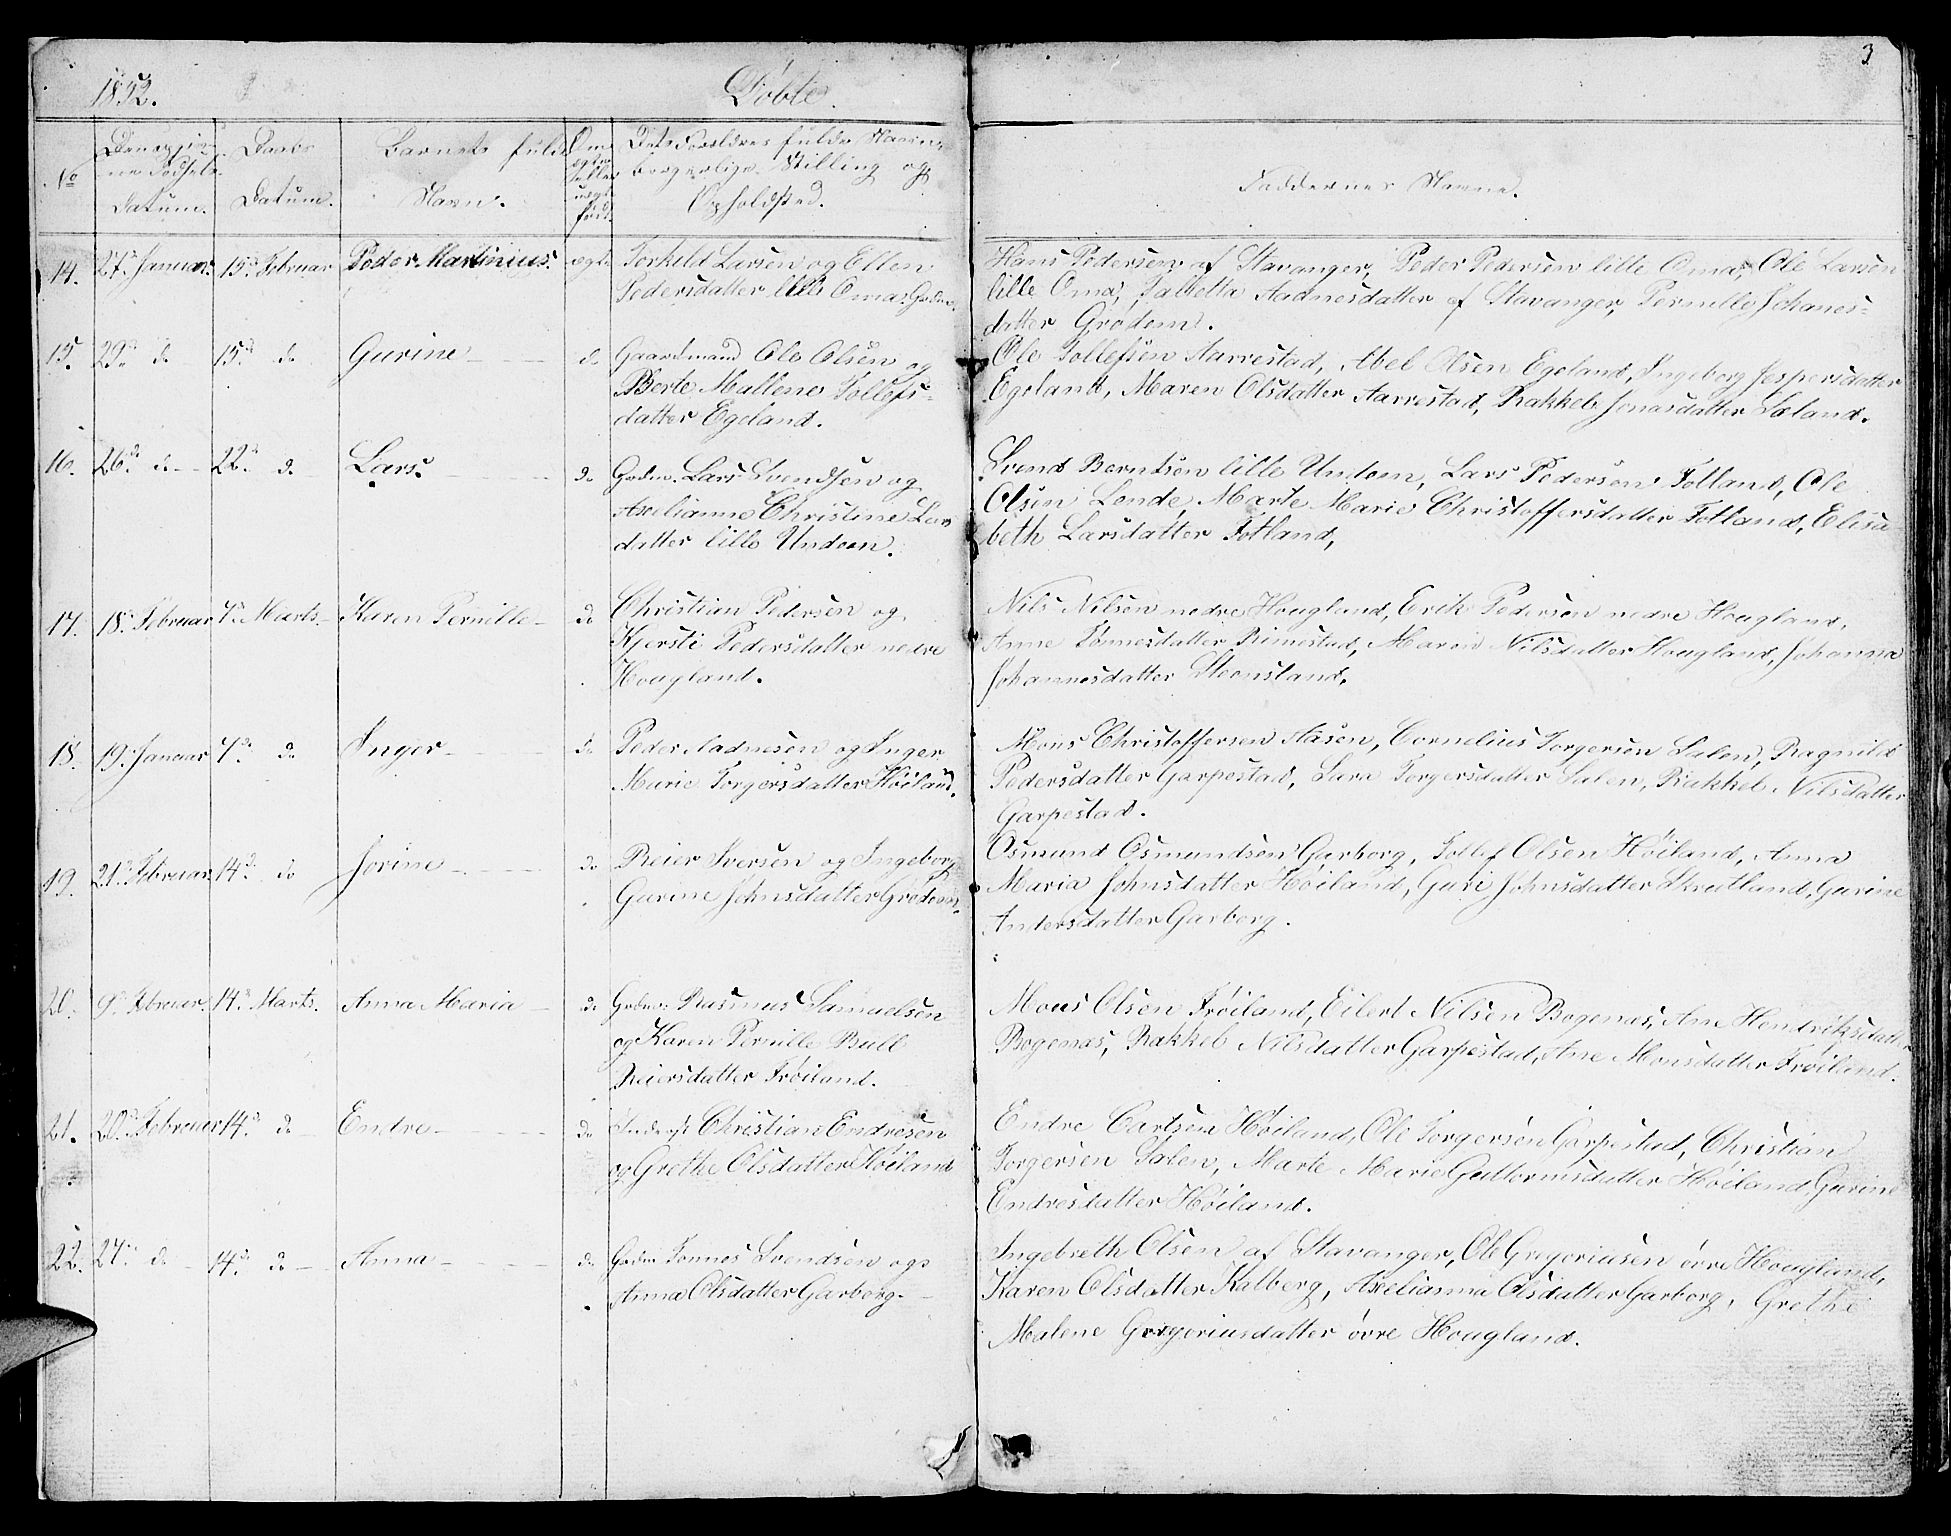 3
1852. Døbte.
No
Datum. Daabs Datum. Barnets fulde Navn. Om ægte eller uægte født. Dets Forældres fulde Navn, borgerlige Stilling og Opholdsted. Faddernes Navne.
14. 27d. Januar. 15d. Februar Peder Martinius. ægte Torkild Larsen og Ellen
Pedersdatter lille Oma. Gdm.
Hans Pedersen af Stavanger, Peder Pedersen lille Oma, Ole Larsen
lille Oma, Aadnesdatter af Stavanger, Pernille Johanes-
datter Grødem.
15. 29d. do 15d. do Gurine do Gaardmand Ole Olsen og
Berte Mallene Tollefs-
datter Egeland.
Ole Tollefsen Aarrestad, Abel Olsen Egeland, Ingeborg Jespersdatter
Egeland, Maren Olsdatter Aarrestad, Rakkel Jonasdatter Læland.
16. 26d. do 22d. do Lars. do Gdm. Lars Svendsen og
Axelianne Christine Lars
datter lille Undem.
Svend Berntsen lille Undem, Lars Pedersen Totland, Ole
Olsen Lende, Marte Marie Christoffersdatter Totland, Elisa-
beth Larsdatter Totland,
17. 18d. Februar 7d. Marts. Karen Pernille do Christian Pedersen og
Kjersti Pedersdatter nedre
Hougland.
Nils Nilsen nedre Hougland, Erik Pedersen nedre Hougland,
Anne Tønnesdatter Rimestad, Maren Nilsdatter Hougland, Johanna
Johannesdatter Steensland.
18. 19d. Januar 7d. do Inger do Peder Aadnesen og Inger
Marie Torgersdatter Høiland.
Mons Christoffersen Aasen, Cornelius Torgersen Salen, Ragnild
Pedersdatter Garpestad, Sara Torgersdatter Salen, Rakkel Nilsdatter
Garpestad.
19. 21d. Februar 14d. do Jorine do Reier Iversen og Ingeborg
Gurine Johnsdatter Grødem.
Osmund Osmundsen Garborg, Tollef Olsen Høiland, Anna
Maria Johnsdatter Høiland, Guri Johnsdatter Skretland, Gurine
Andersdatter Garborg.
20. 9d. Februar. 14d. Marts. Anna Maria do Gdm. Rasmus Samuelsen
og Karen Pernille Bull
Reiersdatter Frøiland.
Mons Olsen Frøiland, Eilert Nilsen Bogenæs, Ane Hendriksdatter
Bogenæs, Rakkel Nilsdatter Garpestad, Ane Monsdatter Frøiland.
21. 20d. Februar 14d. do Endre do Inderst Christian Endresen
og Grethe Olsdatter Høiland
Endre Carlsen Høiland, Ole Torgersen Garpestad, Christian
Torgersen Salen, Marte Marie Guttormsdatter Høiland, Gurine
Endresdatter Høiland.
22. 24d. do 14d. do Anna do Gdm Tønnes Svendsen og
Anna Olsdatter Garborg.
Ingebreth Olsen af Stavanger, Ole Gregoriusen øvre Hougland,
Karen Olsdatter Kalberg, Axelianna Olsdatter Garborg, Grethe
Malene Gregoriusdatter øvre Hougland.